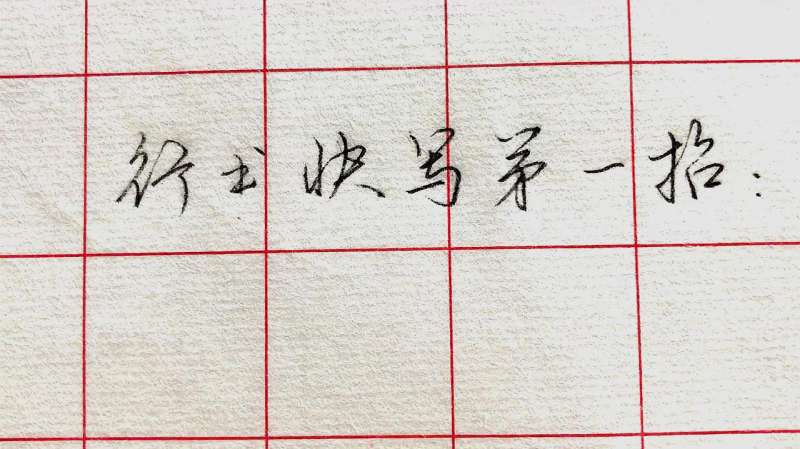 行书快写第一招：